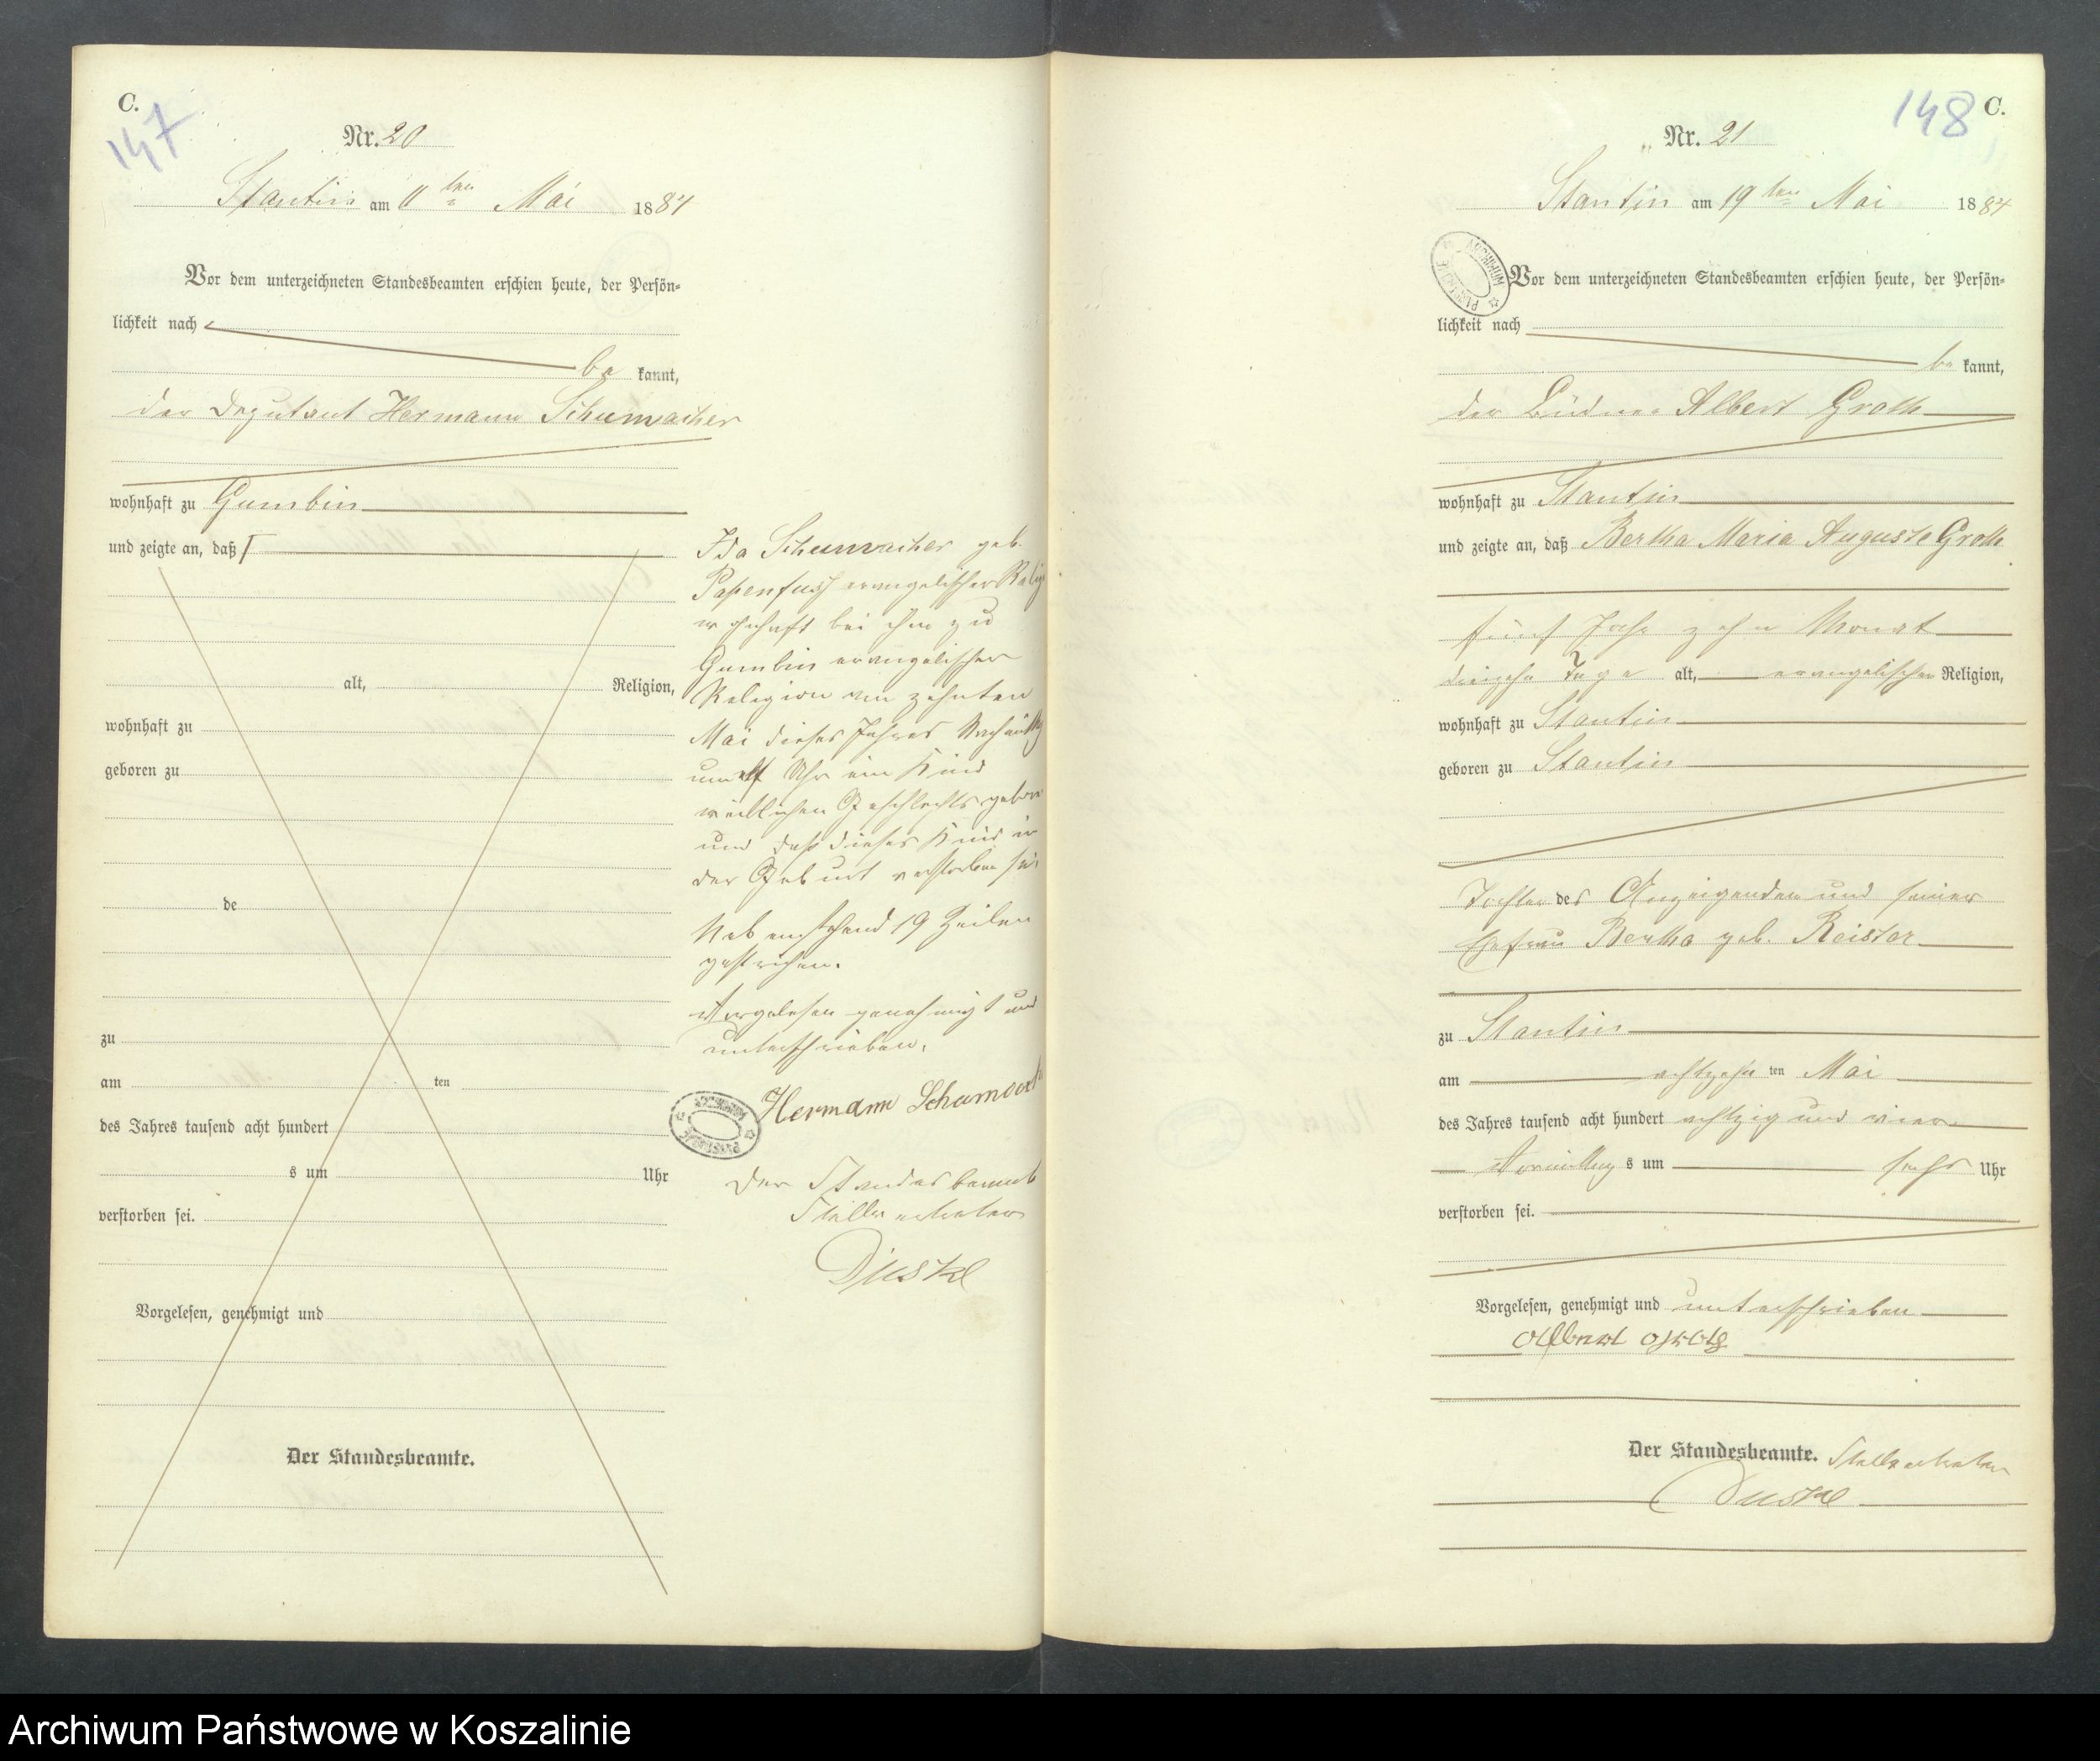 C.
147
Nr. 20
Stantin am 11ten Mai 1884
Vor dem unterzeichneten Standesbeamten erschien heute, der Persön-
lichkeit nach
be kannt,
der Deputant Hermann Schumacher
wohnhaft zu Gumbin
und zeigte an, daß
alt, Religion,
wohnhaft zu
geboren zu
de
zu
am ten
des Jahres tausend acht hundert
s um Uhr
verstorben sei.
Vorgelesen, genehmigt und
Der Standesbeamte.
Ida Schumacher geb.
Papenfuss evangelischer Relig
wohnhaft bei ihm zu
Gumbin evangelischer
Religion am zehnten
Mai dieses Jahres Nachmittg
um elf Uhr ein Kind
weiblichen Geschlechts geboren
und daß dieses Kind in
der Geburt verstorben sei
Nebenstehend 19 Zeilen
gestrichen.
Vorgelesen genehmigt und
unterschrieben.
Hermann Schumach
Der Standesbeamte
Stellvertreter
Duske
148
C.
Nr. 21
Stantin am 19ten Mai 1884
Vor dem unterzeichneten Standesbeamten erschien heute, der Persön-
lichkeit nach
be kannt,
der Büdner Albert Groth
wohnhaft zu Stantin
und zeigte an, daß Bertha Maria Auguste Groth
fünf Jahr zehn Monat
dreizehn Tage alt, evangelischer Religion,
wohnhaft zu Stantin
geboren zu Stantin
Tochter des Anzeigenden und seiner
Ehefrau Bertha geb. Reister
zu Stantin
am achtzehn ten Mai
des Jahres tausend acht hundert achtzig und vier
Vormittag s um sechs Uhr
verstorben sei.
Vorgelesen, genehmigt und unterschrieben
Albert Groth
Der Standesbeamte. Stellvertreter
Duske
Archiwum Państwowe w Koszalinie